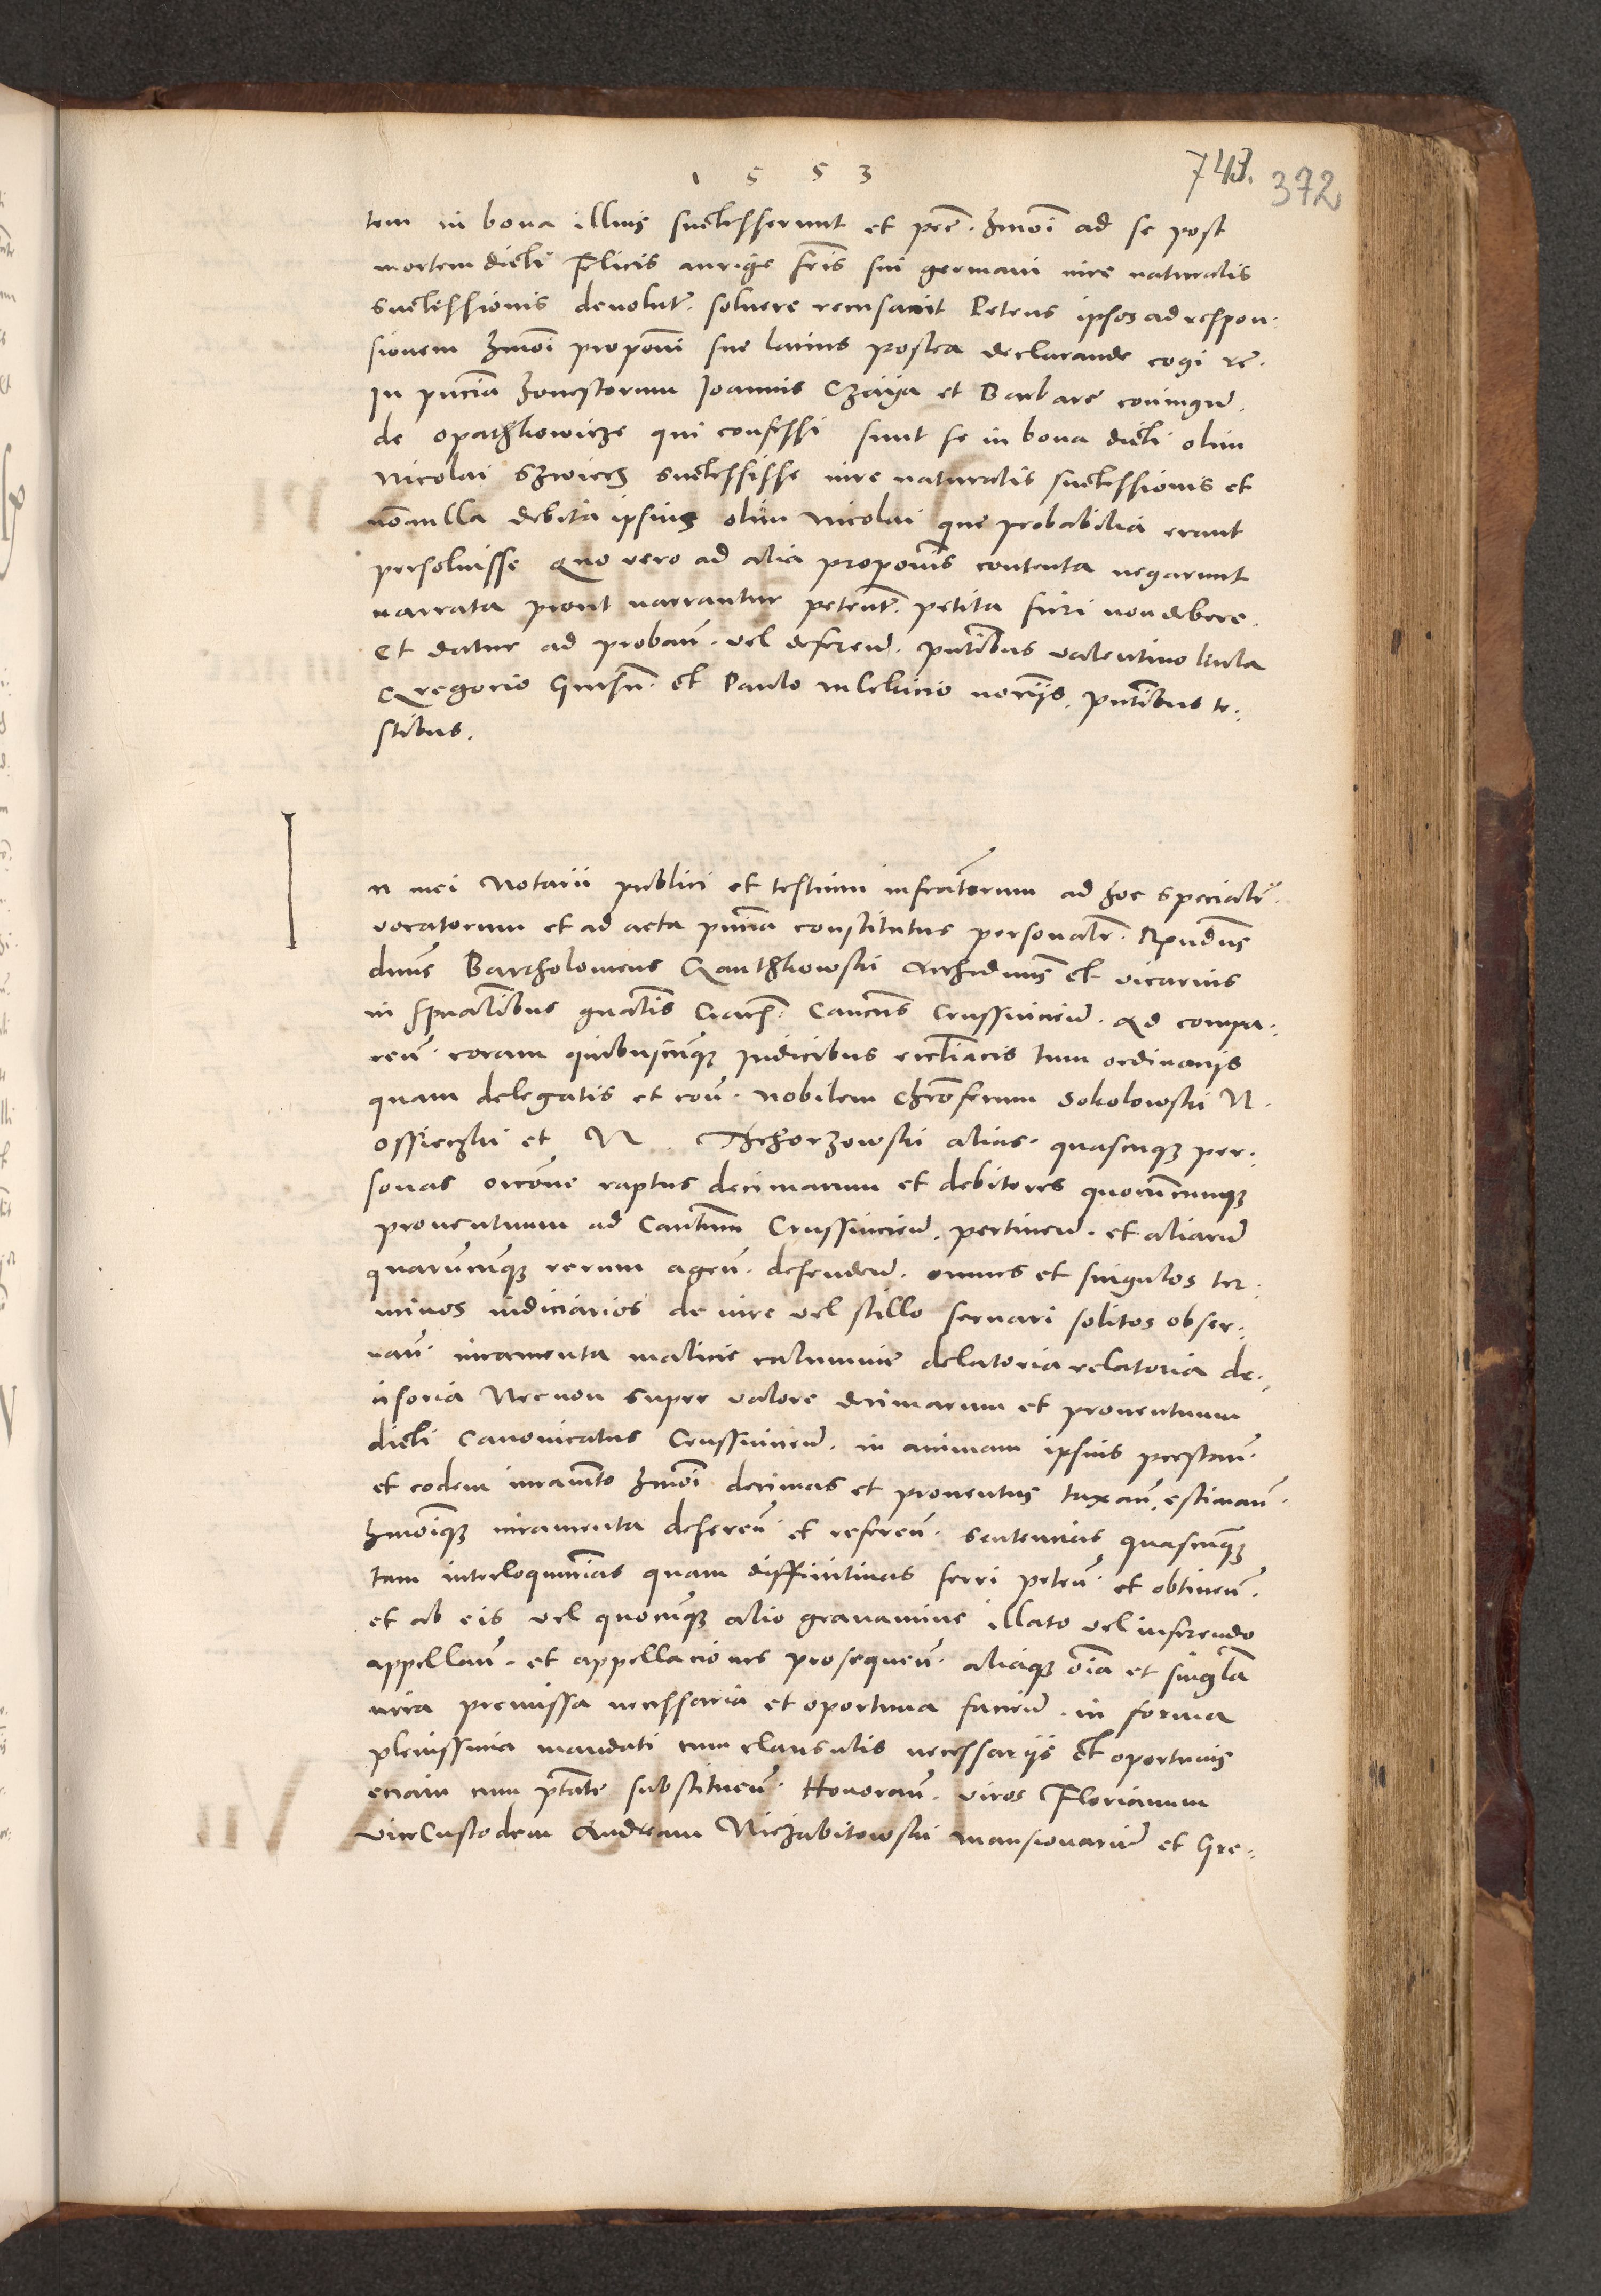 1 5 5 3
743. 372
tem in bona illius successerunt et pec̄. hmōi ad se post
mortem dicti Felicis aurige fr̄is sui germani iure naturalis
successionis devolut. soluere recusarit Petens ipsos ad respon-
sionem hmōi propōni sue latius postea declarande cogi rē.
In pn̄cia honestorum Joannis Czaya et Barbare coniugū.
de opathkowicze qui confessi sunt se in bona dicti olim
Nicolai successisse iure naturalis successionis et
nōnulla debita ipsius olim Nicolai que probabilia erant
persoluisse Quo vero ad alia propōnis contenta negarunt
narrata prout narrantur petent. petita fieri non debere.
Et datur ad proban̄. vel deferend. pn̄tibus valentino kula
Gregorio et Paulo noriis, pn̄tibus te-
stibus.
In mei Notarii publici et testium infrātorum ad hoc specialr̄.
vocatorum et ad acta pn̄tia constitutus personalr̄. Rn̄dus
dn̄us Bartholomeus Ganthkowski Archidn̄us et vicarius
in spūalibus gn̄alis Crac̄. Cancn̄s Crusswicien̄. Ad compa-
ren̄. coram quibuscunqz Iudicibus ecclīacis tum ordinariis
quam delegatis et con̄. nobilem Chrōferum Sokolowski N.
ossieczki et N. Thchorzowski alias. quascuqz per-
sonas occōne raptus decimarum et debitores quorumcunqz
prouentuum ad Cantum Crusswicien̄. pertinen̄. et aliarū
quarumcunqz rerum agen̄. defenden̄. omnes et singulos ter-
minos iudiciarios de iure vel stillo seruari solitos obser-
uan̄. iuramenta malicie calumnie delatoria relatoria de-
cisoria Necnon super valore decimarum et prouentuum
dicti Canonicatus Crusswicien̄. in animam ipsius prestan̄.
et eodem iuramto hmōi decimas et prouentus taxan̄, estiman̄.
hmōiqz iuramenta deferen̄. et referen̄. sentencias quascunqz
tam interloqutorias quam diffinitiuas ferri peten̄. et obtinen̄.
et ab eis vel quocunqz alio grauamine illato vel inferendo
appellan̄. et appellaciones prosequen̄. aliaqz oīa et singula
circa premissa necessaria et oportuna facien̄. in forma
plenissima mandati cum clausulis necessariis et oportunis
eciam cum ptāte substituen̄. Honoran̄. viros Florianum
viceCustodem Andream Niezabitowski mansionariū et Gre-